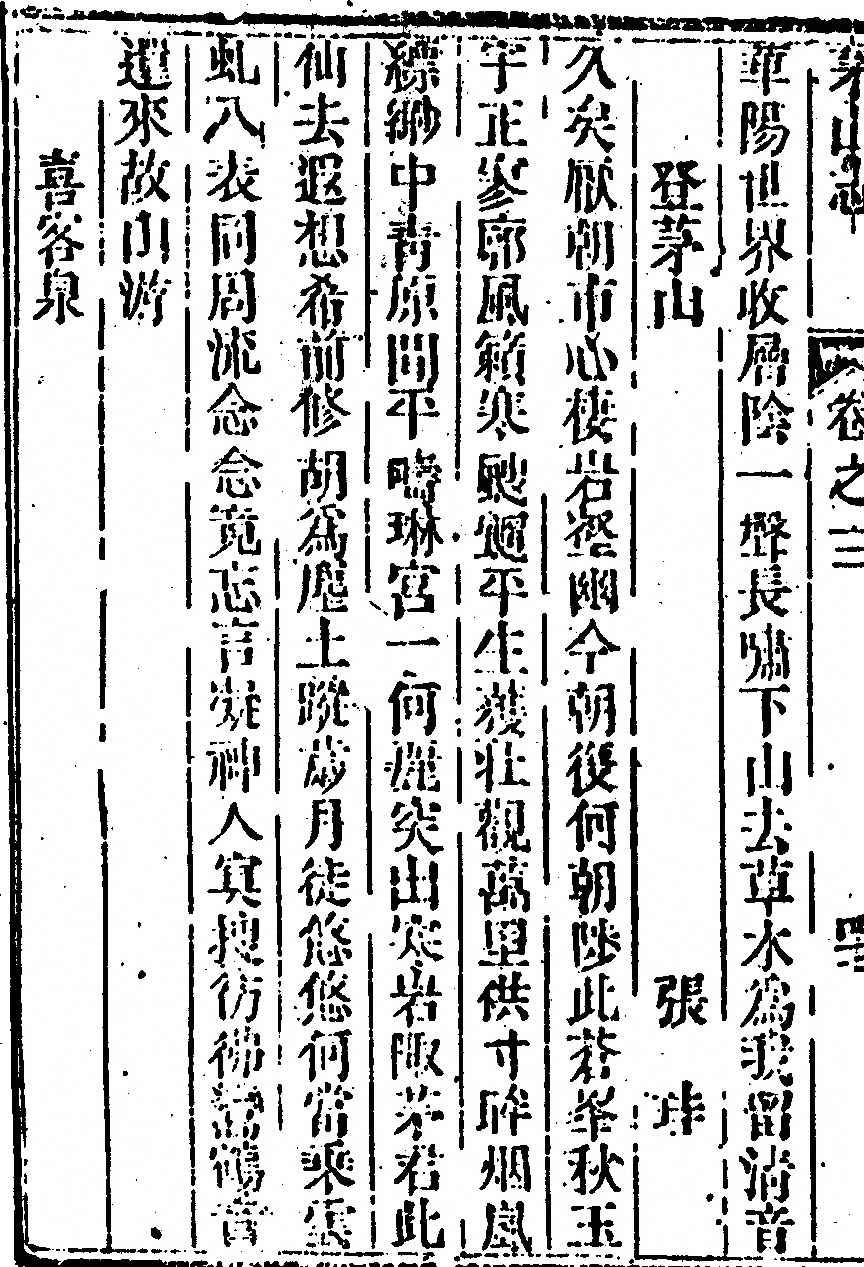 茅山志 卷之三
華陽世界收層陰一聲長嘯下山去草木為我留清音
登茅山 張 珪
久矣厭朝市心棲岩壑幽今朝復何朝陟此蒼峯秋玉
宇正寥廓風籟寒颼飀平生獲壯觀萬里供寸眸烟嵐
縹緲中青原間平疇琳宮一何麗突出寒岩陬茅君此
仙去遐想希前修胡為塵土蹤歲月徒悠悠何當乘雲
虬八表同周流念念竟忘言凝神入冥搜彷彿鸞鶴音
還來故山游
喜客泉